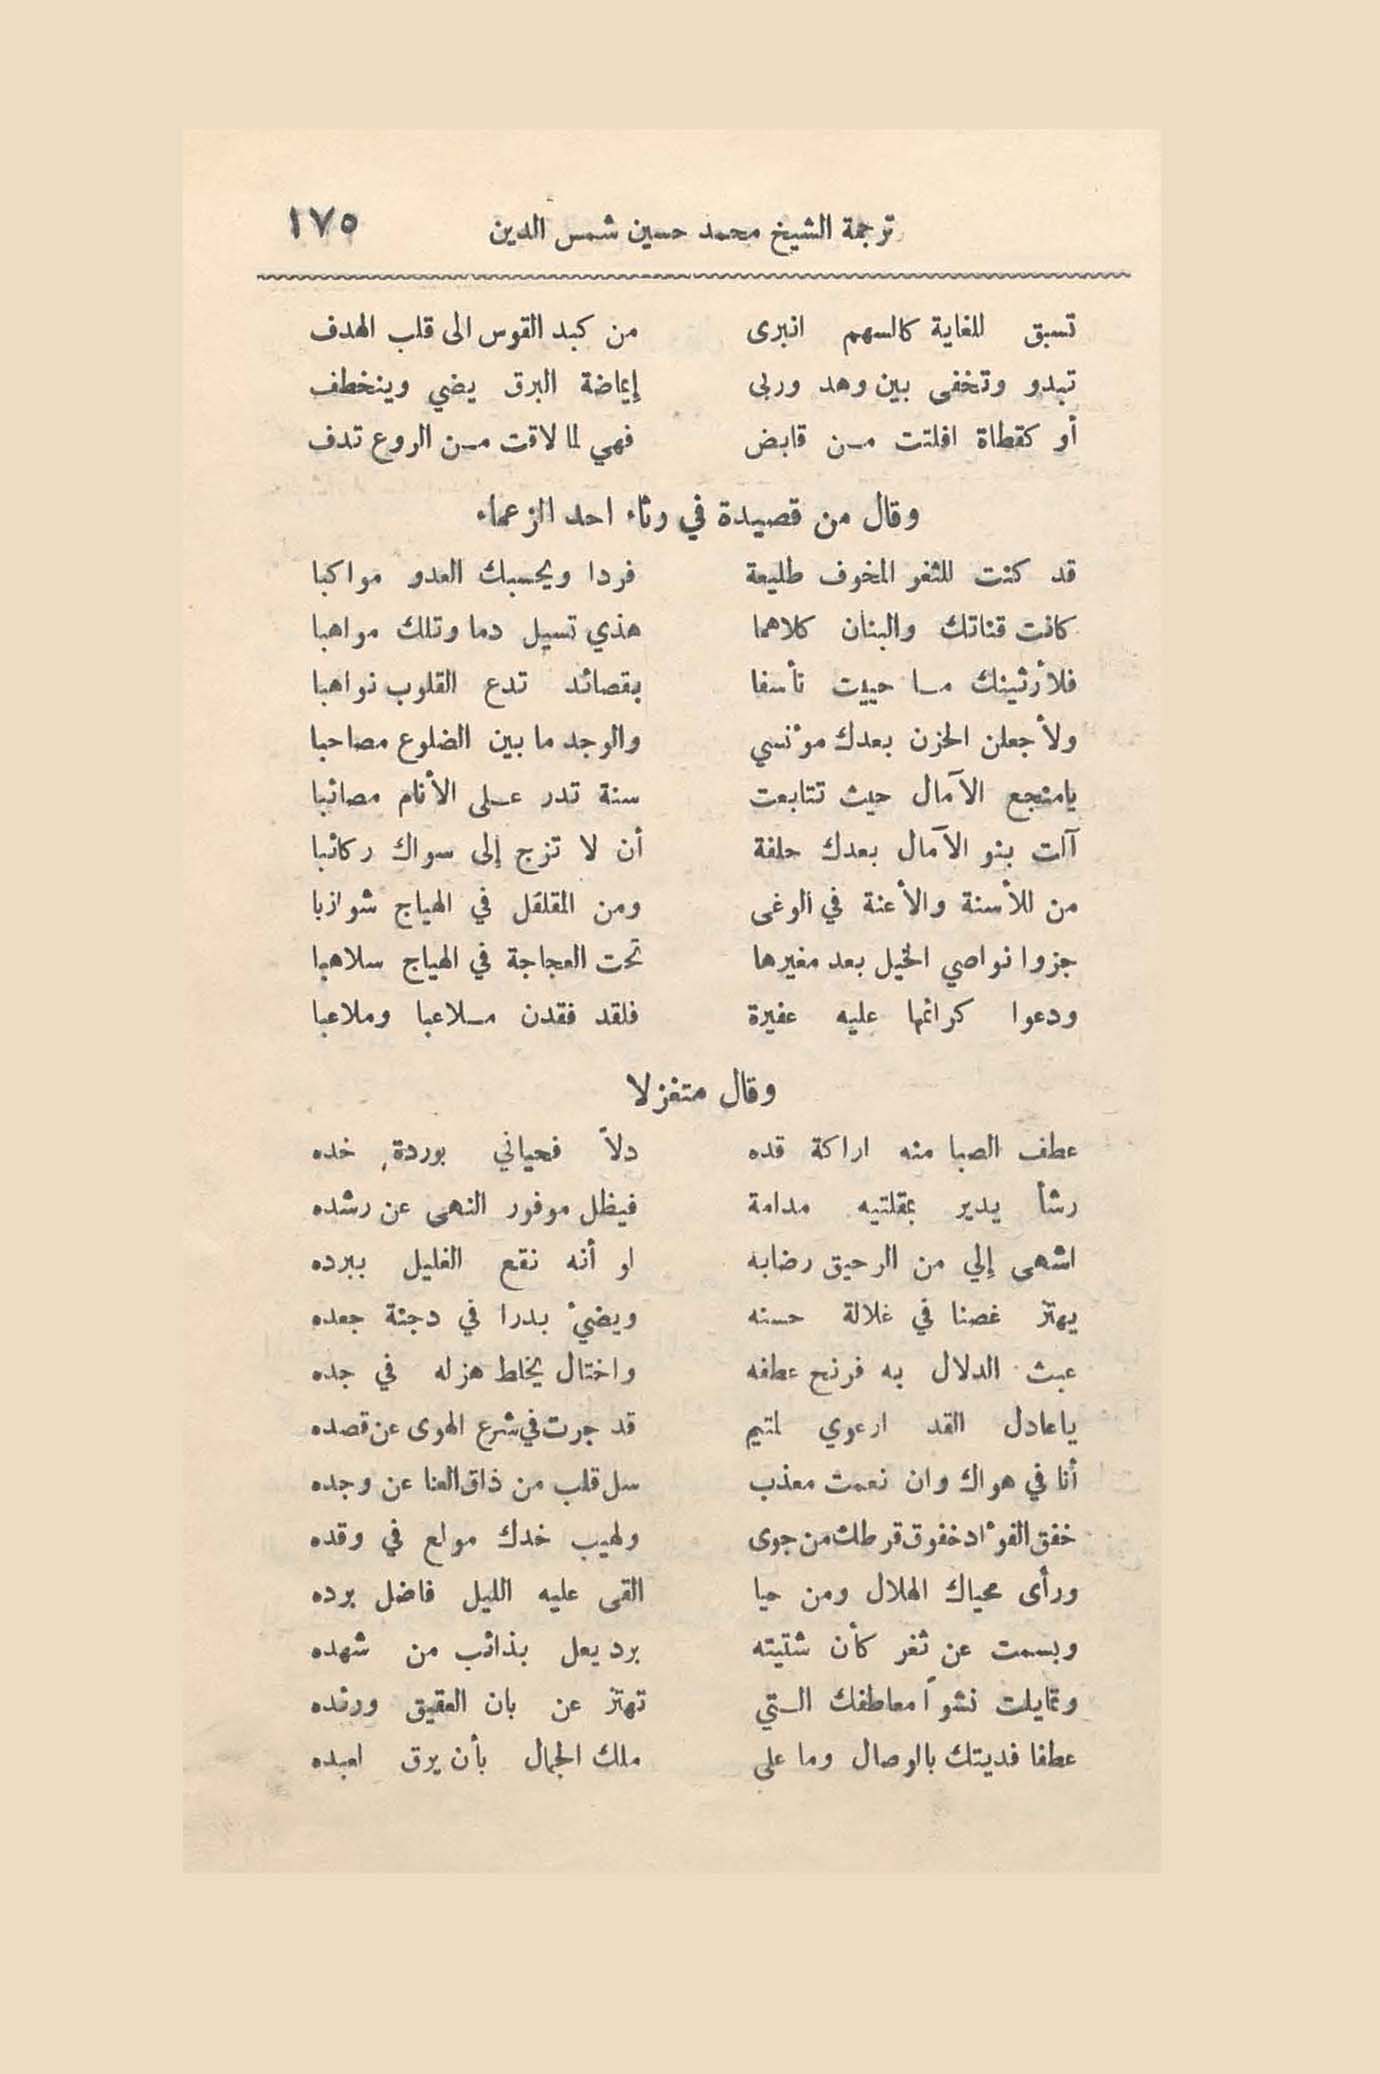 ترجمة الشيخ محمد حسين شمس الدين ١٧٥
تسبق للغاية كالسهم انبرى من كبد القوس الى قلب الهدف
تبدو وتخفى بين وهد وربى إيماضة البرق يضي وينخطف
أو كقطاة افلتت من قابض فهي لما لاقت من الروع تدف
وقال من قصيدة في رثاء احد الزعماء
قد كنت للثغر المخوف طليعة فردا ويحسبك العدو مواكبا
كانت قناتك والبنان كلاهما هذي تسيل دما وتلك مواهبا
فلأرثينك ما حييت تأسفا بقصائد تدع القلوب نواهبا
ولأجعلن الحزن بعدك مؤنسي والوجد ما بين الضلوع مصاحبا
يامنتجع الآمال حيث تتابعت سنة تدر على الأنام مصائبا
آلت بنو الآمال بعدك حلفة أن لا تزج إلى سواك ركائبا
من للأسنة والأعنة في الوغى ومن المقلقل في الهياج شوازبا
جزوا نواصي الخيل بعد مغيرها تحت العجاجة في الهياج سلاهبا
ودعوا كرائمها عليه عفيرة فلقد فقدن ملاعبا وملاعبا
وقال متغزلا
عطف الصبا منه اراكة قده دلاً فحياني بوردة خده
رشأ يدير بمقلتيه مدامة فيظل موفور النهى عن رشده
اشهى إلي من الرحيق رضابه او أنه نقع الغليل ببرده
يهتز غصنا في غلالة حسنه ويضيء بدرا في دجنة جعده
عبث الدلال به فرنح عطفه واختال يخلط هزله في جده
ياعادل القد ارعوي لمتيم قد جرت في شرع الهوى عن قصده
أنا في هواك وان نعمت معذب سل قلب من ذاق العنا عن وجده
خفق الفؤاد خفوق قرطك من جوى ولهيب خدك مولع في وقده
ورأى محياك الهلال ومن حيا القى عليه الليل فاضل برده
وبسمت عن ثغر كأن شتيته برد يعل بذائب من شهده
وتمايلت نشواً معاطفك التي تهتز عن بان العقيق ورنده
عطفا فديتك بالوصال وما على ملك الجمال بأن يرق لعبده